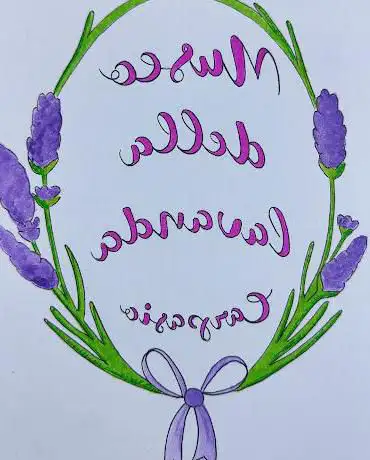 Museo
della
lavanda
Carpasio